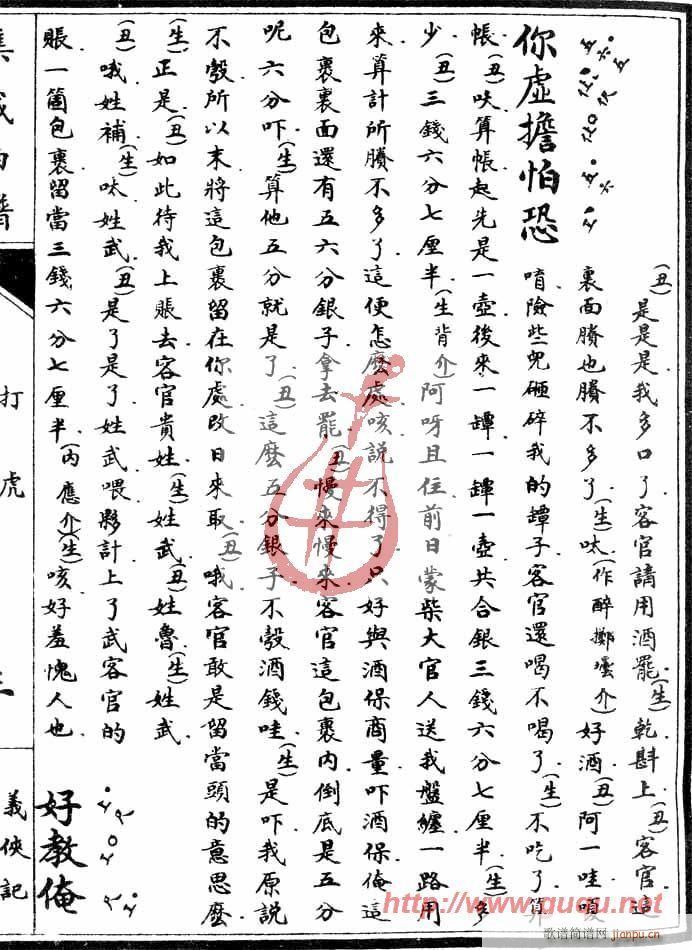 你虛擔怕恐
(丑)是是是我多口了客官請用酒罷(生)乾斟上(丑)客官這
裏面賸也賸不多了(生)呔(作醉擲罎介)好酒(丑)阿一哇嗄
唷險些兒砸碎我的罈子客官還喝不喝了(生)不吃了算
帳(丑)呋算帳起先是一壺後來一罈一罈一壺共合銀三錢六分七厘半(生)多
少(丑)三錢六分七厘半(生背介)阿呀且住前日蒙柴大官人送我盤纏一路用
來算計所賸不多了這便怎麼處咳說不得了只好與酒保商量吓酒保俺這
包裹裏面還有五六分銀子拿去罷(丑)慢來慢來客官這包裹內倒底是五分
呢六分吓(生)算他五分就是了(丑)這麼五分銀子不彀酒錢哇(生)是吓我原說
不彀所以末將這包裹留在你處改日來取(丑)哦客官敢是留當頭的意思麼
(生)正是(丑)如此待我上賬去客官貴姓(生)姓武(丑)姓魯(生)姓武
(丑)哦姓補(生)呔姓武(丑)是了是了姓武喂夥計上了武客官的
賬一箇包裹留當三錢六分七厘半(內應介)(生)咳好羞愧人也
好教俺
集成曲譜
打虎
義俠記
http://www.ququ.net
歌谱简谱网
jianpu.cn